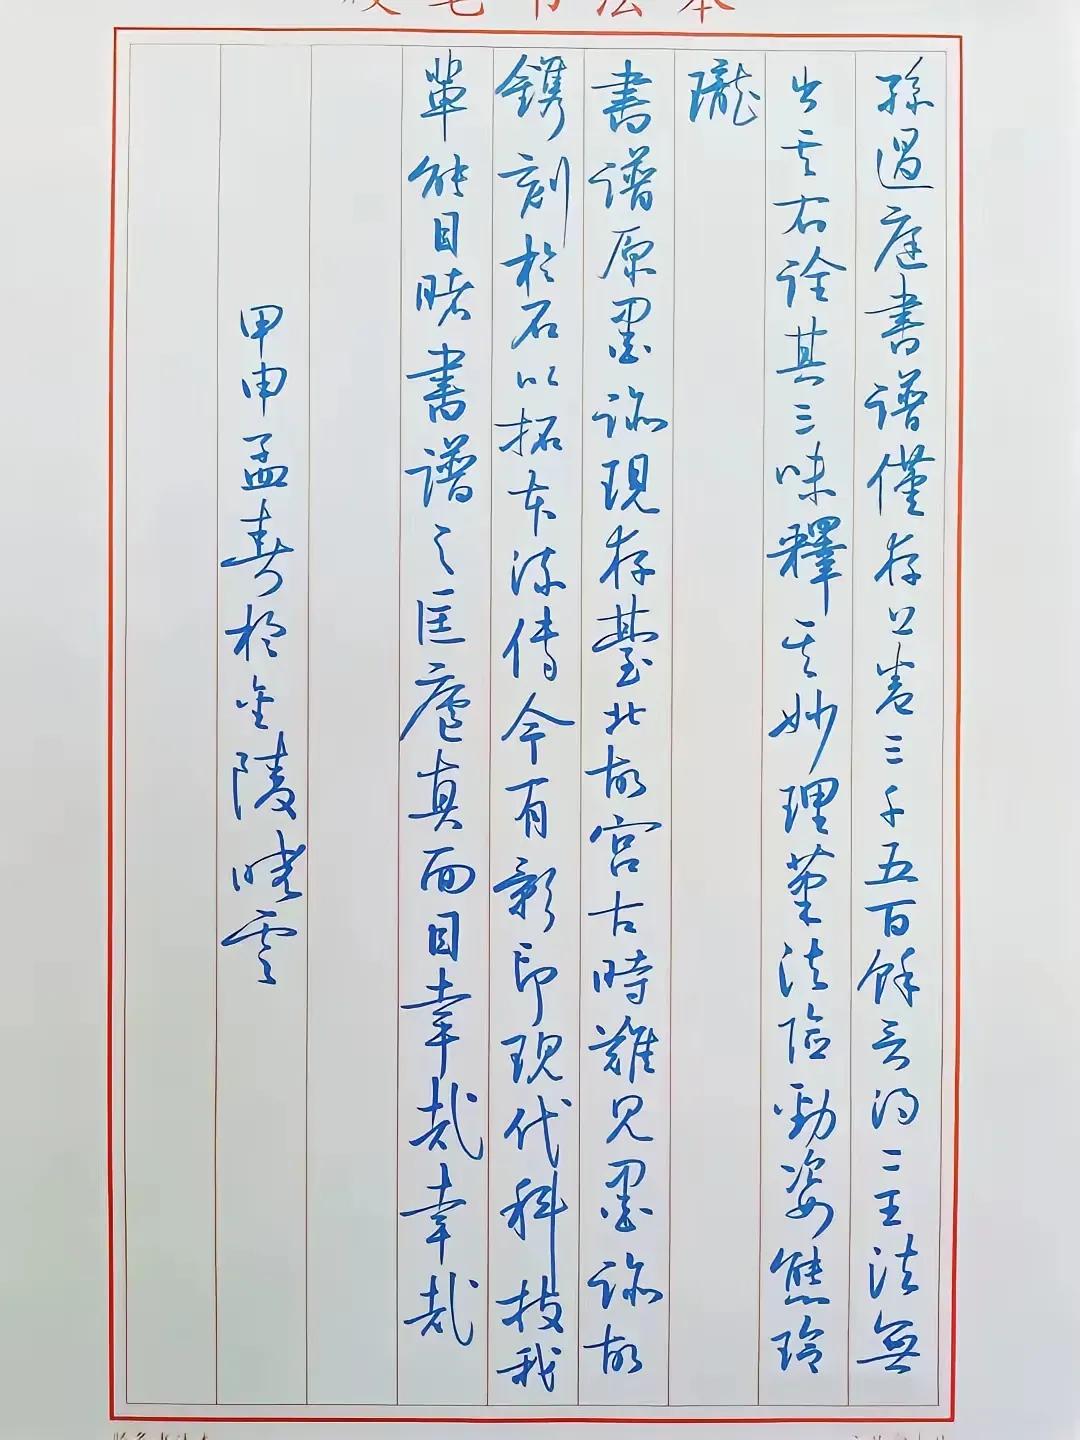 硬笔书法本
孫過庭書譜僅存上卷三千五百餘言得二王法無
出其右詮其三味釋其妙理筆法險勁姿態玲
瓏
書譜原墨跡現存臺北故宮古時難見墨跡故
鐫刻於石以拓本流傳今有影印現代科技我
輩能目睹書譜之匡廬真面目幸哉幸哉
甲申孟春於金陵曉雲